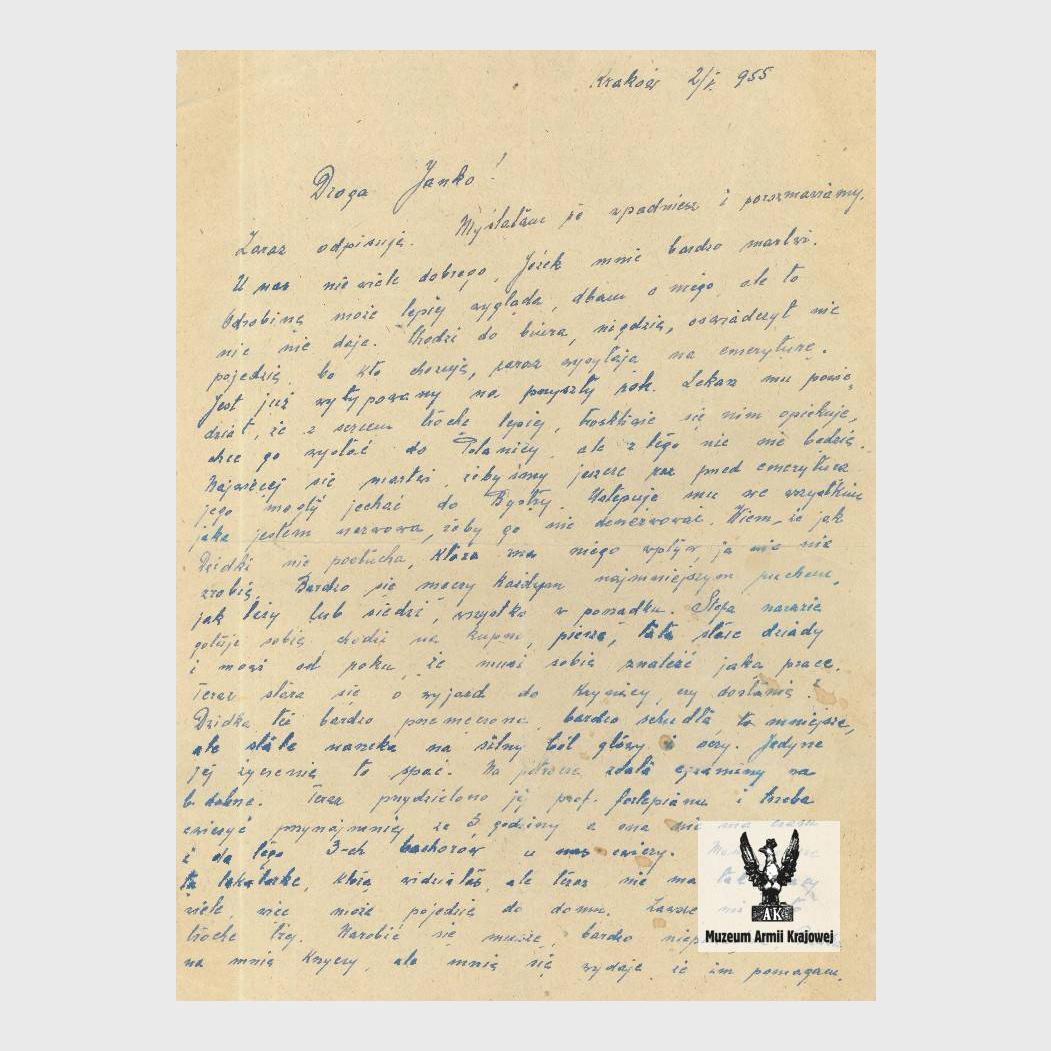 Kraków 2/I. 955
Droga Janko!
Zaraz odpisuję. Myślałam że wpadniesz i porozmawiamy.
U nas nie wiele dobrego, Józek mnie bardzo martwi.
Odrobinę może lepiej wygląda, dbam o niego, ale to
nic nie daje. Chodzi do biura, nigdzie, oświadczył nie
pojedzie, bo kto choruje, zaraz wysyłają na emeryturę.
Jest już wytypowany na przyszły rok. Lekarz mu powie-
dział, że z sercem trochę lepiej, troskliwie się nim opiekuje,
chce go wysłać do Polanicy, ale z tego nic nie będzie.
Najwięcej się martwi, żebyśmy jeszcze raz przed emeryturą
jego mogły jechać do Bystry. Ustępuję mu we wszystkim
jaka jestem nerwowa, żeby go nie denerwować. Wiem, że jak
Dzidki nie posłucha, która ma niego wpływ ja nic nie
zrobię. Bardzo się męczy każdym najmniejszym ruchem,
jak leży lub siedzi, wszystko w porządku. Stefa narazie
gotuje sobie, chodzi na kupno, pierze, łata stare dziady
i mówi od roku, że musi sobie znaleźć jaką pracę.
Teraz stara się o wyjazd do Krynicy, czy dostanie?
Dzidka też bardzo przemęczona, bardzo schudła, to mniejsze,
ale stale narzeka na silny ból głowy i oczy. Jedyne
jej życzenie to spać. Na zdała egzaminy na
b. dobrze. Teraz przydzielono jej prof. fortepianu i trzeba
ćwiczyć przynajmniej ze 3 godziny a ona nie ma czasu
i do tego 3-ch bachorów u nas ćwiczy.
tę lokatorkę, którą widziałaś, ale teraz nie ma
wiele, więc może pojedzie do domu. Zawsze
trochę lżej. Narobić się muszę, bardzo
na mnie krzyczy, ale mnie się wydaje że im pomagam.
AK
Muzeum Armii Krajowej